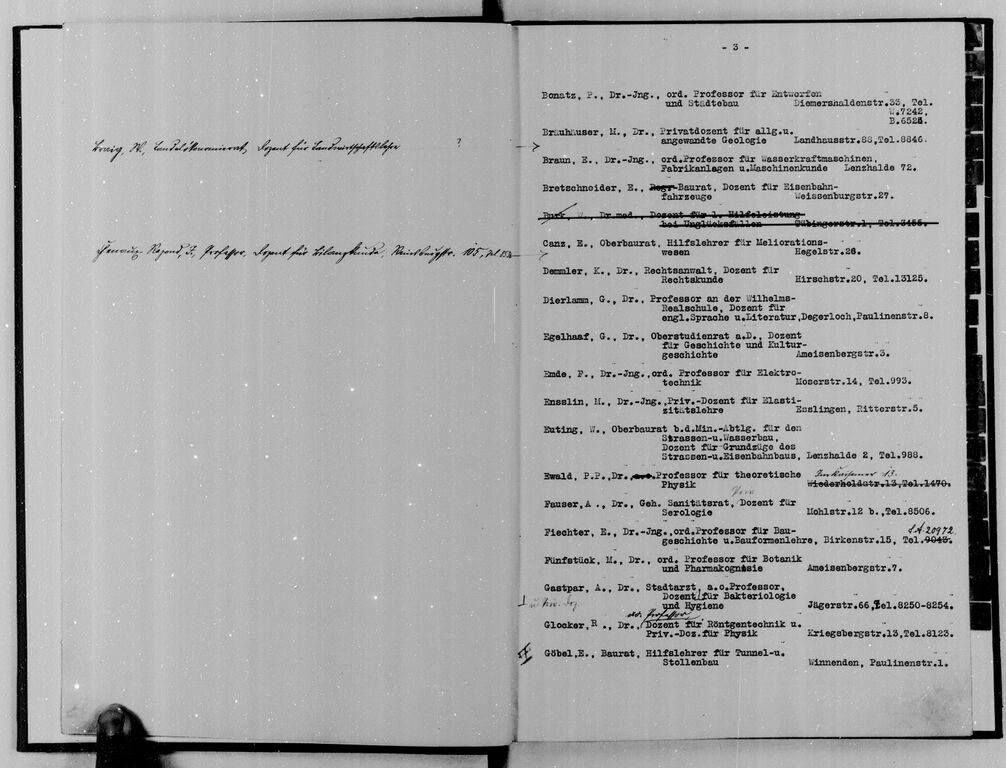 Braig, W., Landesökonomierat, Dozent für Landwirtschaftslehre ?
Professor, Dozent für Bilanzkunde, Reinsburgstr. 105,
- 3 -
Bonatz, P., Dr.-Jng., ord. Professor für Entwerfen
und Städtebau Diemershaldenstr.33, Tel.
W.7242,
B.6525.
Bräuhäuser, M., Dr., Privatdozent für allg.u.
angewandte Geologie Landhausstr.88,Tel.8846.
Braun, E., Dr.-Jng., ord.Professor für Wasserkraftmaschinen,
Fabrikanlagen u.Maschinenkunde Lenzhalde 72.
Bretschneider, E., Regr-Baurat, Dozent für Eisenbahn-
fahrzeuge Weissenburgstr.27.
Burk, W., Dr.med., Dozent für 1. Hilfeleistung
bei Unglücksfällen Tübingerstr.1, Tel.3455.
Canz, E., Oberbaurat, Hilfslehrer für Meliorations-
wesen Hegelstr.26.
Demmler, K., Dr., Rechtsanwalt, Dozent für
Rechtskunde Hirschstr.20, Tel.13125.
Dierlamm, G., Dr., Professor an der Wilhelms-
Realschule, Dozent für
engl.Sprache u.Literatur,Degerloch,Paulinenstr.8.
Egelhaaf, G., Dr., Oberstudienrat a.D., Dozent
für Geschichte und Kultur-
geschichte Ameisenbergstr.3.
Emde, F., Dr.-Jng.,ord. Professor für Elektro-
technik Moserstr.14, Tel.993.
Ensslin, M., Dr.-Jng.,Priv.-Dozent für Elasti-
zitätslehre Esslingen, Ritterstr.5.
Euting, W., Oberbaurat b.d.Min.-Abtlg. für den
Strassen-u.Wasserbau,
Dozent für Grundzüge des
Strassen-u.Eisenbahnbaus, Lenzhalde 2, Tel.988.
Ewald, P.P.,Dr., Professor für theoretische 13.
Physik Wiederholdstr.13,Tel.1470.
Fauser,A., Dr., Geh. Sanitätsrat, Dozent für
Serologie Mohlstr.12 b.,Tel.8506.
Fiechter, E., Dr.-Jng.,ord.Professor für Bau- S.A. 20972
geschichte u.Bauformenlehre, Birkenstr.15, Tel.9043.
Fünfstück, M., Dr., ord. Professor für Botanik
und Pharmakognosie Ameisenbergstr.7.
Gastpar, A., Dr., Stadtarzt, a.o.Professor,
Dozent für Bakteriologie
und Hygiene Jägerstr.66,Tel.8250-8254.
ao. Professor
Glocker,R., Dr., Dozent für Röntgentechnik u.
Priv.-Doz.für Physik Kriegsbergstr.13,Tel.8123.
Göbel,E., Baurat, Hilfslehrer für Tunnel-u.
Stollenbau Winnenden, Paulinenstr.1.